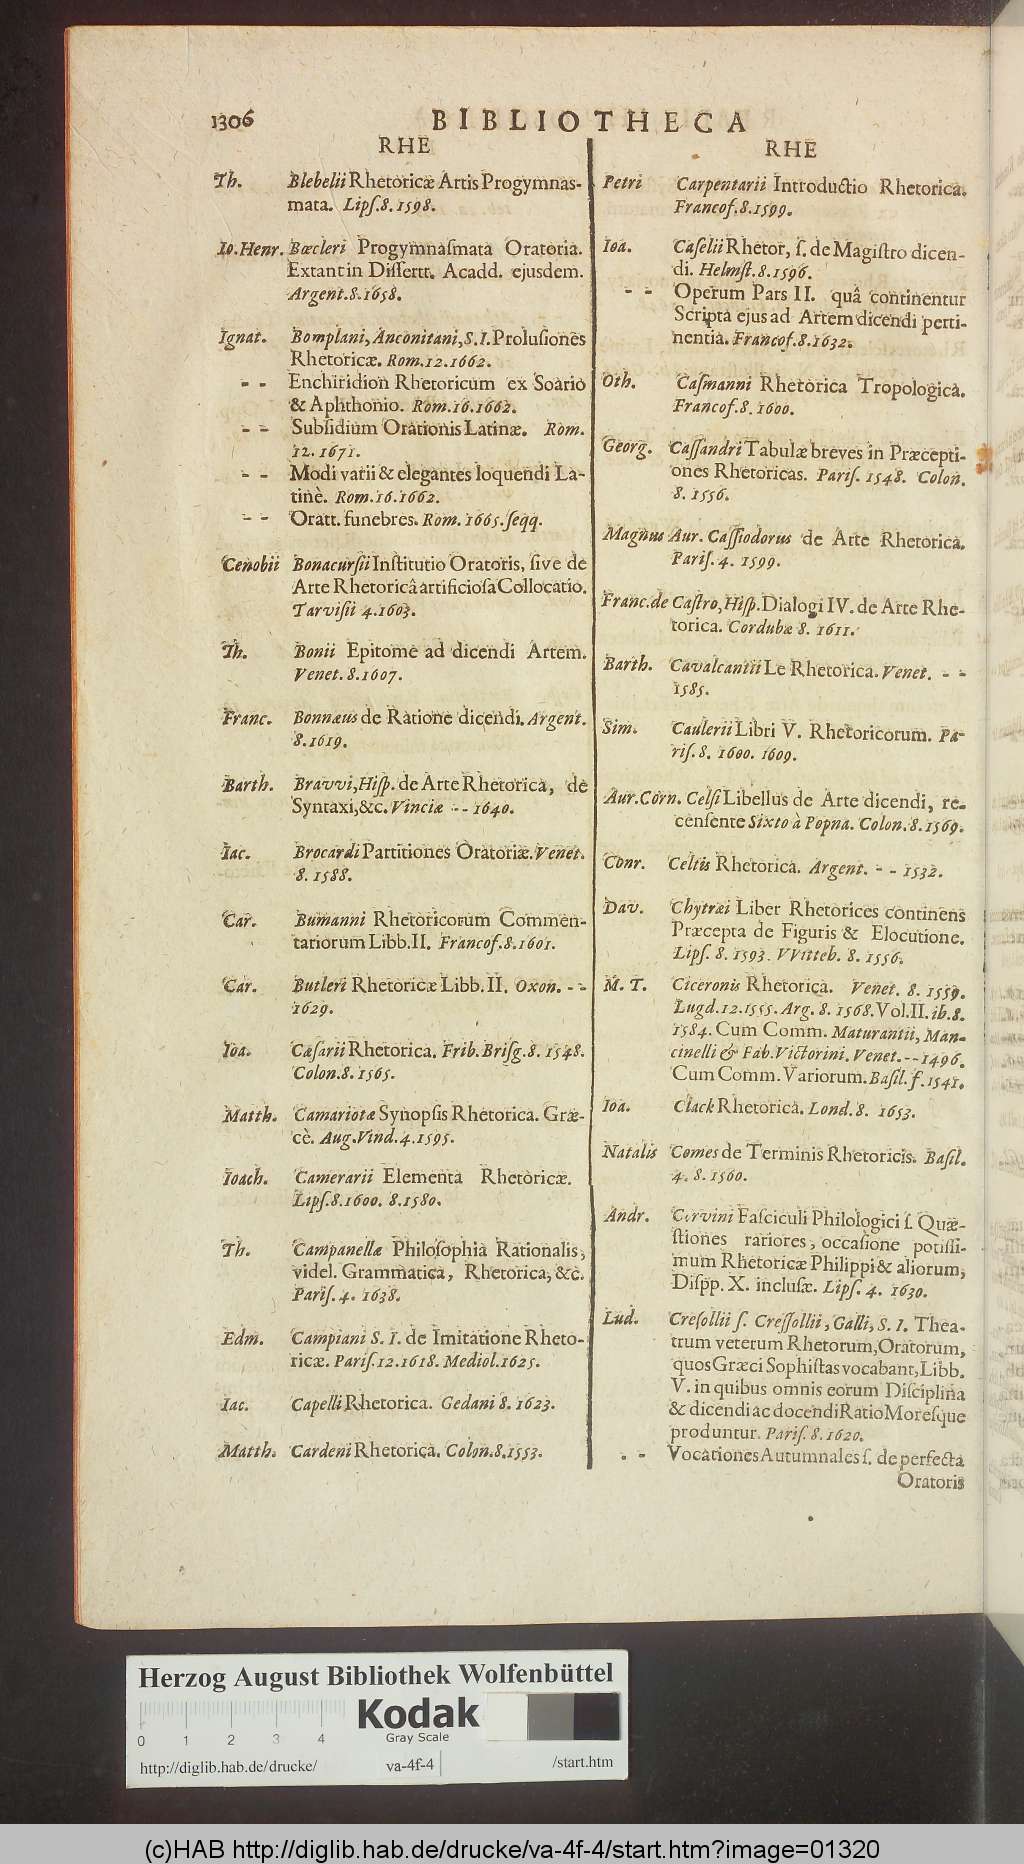 1306
BIBLIOTHECA
RHE
Th. Blebelii Rhetoricæ Artis Progymnaſ-
mata. Lipſ. 8. 1598.
Io. Henr. Bœcleri Progymnaſmata Oratoria.
Extant in Diſſertt. Acadd. ejusdem.
Argent. 8. 1658.
Ignat. Bomplani, Anconitani, S. I. Proluſiones
Rhetoricæ. Rom. 12. 1662.
- - Enchiridion Rhetoricum ex Soario
& Aphthonio. Rom. 16. 1662.
- - Subſidium Orationis Latinæ. Rom.
12. 1671.
- - Modi varii & elegantes loquendi La-
tinè. Rom. 16. 1662.
- - Oratt. funebres. Rom. 1665. ſeqq.
Cenobii Bonacurſii Inſtitutio Oratoris, ſive de
Arte Rhetoricâ artificioſa Collocatio.
Tarviſii 4. 1603.
Th. Bonii Epitome ad dicendi Artem.
Venet. 8. 1607.
Franc. Bonnæus de Ratione dicendi. Argent.
8. 1619.
Barth. Bravvi, Hiſp. de Arte Rhetorica, de
Syntaxi, &c. Vinciæ - - 1640.
Iac. Brocardi Partitiones Oratoriæ. Venet.
8. 1588.
Car. Bumanni Rhetoricorum Commen-
tariorum Libb. II. Francof. 8. 1601.
Car. Butleri Rhetoricæ Libb. II. Oxon. - -
1629.
Ioa. Cæſarii Rhetorica. Frib. Briſg. 8. 1548.
Colon. 8. 1565.
Matth. Camariotæ Synopſis Rhetorica. Græ-
cè. Aug. Vind. 4. 1595.
Ioach. Camerarii Elementa Rhetoricæ.
Lipſ. 8. 1600. 8. 1580.
Th. Campanellæ Philoſophia Rationalis,
videl. Grammatica, Rhetorica, &c.
Pariſ. 4. 1638.
Edm. Campiani S. I. de Imitatione Rheto-
ricæ. Pariſ. 12. 1618. Mediol. 1625.
Iac. Capelli Rhetorica. Gedani 8. 1623.
Matth. Cardeni Rhetorica. Colon. 8. 1553.
RHE
Petri Carpentarii Introductio Rhetorica.
Francof. 8. 1599.
Ioa. Caſelii Rhetor, ſ. de Magiſtro dicen-
di. Helmſt. 8. 1596.
- - Operum Pars II. quâ continentur
Scripta ejus ad Artem dicendi perti-
nentia. Francof. 8. 1632.
Oth. Caſmanni Rhetorica Tropologica.
Francof. 8. 1600.
Georg. Caſſandri Tabulæ breves in Præcepti-
ones Rhetoricas. Pariſ. 1548. Colon.
8. 1556.
Magnus Aur. Caſſiodorus de Arte Rhetorica.
Pariſ. 4. 1599.
Franc. de Caſtro, Hiſp. Dialogi IV. de Arte Rhe-
torica. Cordubæ 8. 1611.
Barth. Cavalcantii Le Rhetorica. Venet. - -
1585.
Sim. Caulerii Libri V. Rhetoricorum. Pa-
riſ. 8. 1600. 1609.
Aur. Corn. Celſi Libellus de Arte dicendi, re-
cenſente Sixto à Popna. Colon. 8. 1569.
Conr. Celtis Rhetorica. Argent. - - 1532.
Dav. Chytræi Liber Rhetorices continens
Præcepta de Figuris & Elocutione.
Lipſ. 8. 1593. VVitteb. 8. 1556.
M. T. Ciceronis Rhetorica. Venet. 8. 1559.
Lugd. 12. 1555. Arg. 8. 1568. Vol. II. ib. 8.
1584. Cum Comm. Maturantii, Man-
cinelli & Fab. Victorini. Venet. - - 1496.
Cum Comm. Variorum. Baſil. f. 1541.
Ioa. Clack Rhetorica. Lond. 8. 1653.
Natalis Comes de Terminis Rhetoricis. Baſil.
4. 8. 1560.
Andr. Corvini Faſciculi Philologici ſ. Quæ-
ſtiones rariores, occaſione potiſſi-
mum Rhetoricæ Philippi & aliorum,
Diſpp. X. incluſæ. Lipſ. 4. 1630.
Lud. Creſollii ſ. Creſſollii, Galli, S. I. Thea-
trum veterum Rhetorum, Oratorum,
quos Græci Sophiſtas vocabant, Libb.
V. in quibus omnis eorum Diſciplina
& dicendi ac docendi Ratio Moreſque
produntur. Pariſ. 8. 1620.
- - Vocationes Autumnales ſ. de perfecta
Oratoris
Herzog August Bibliothek Wolfenbüttel
Kodak
Gray Scale
0 1 2 3 4
http://diglib.hab.de/drucke/ va-4f-4 /start.htm
(c)HAB http://diglib.hab.de/drucke/va-4f-4/start.htm?image=01320